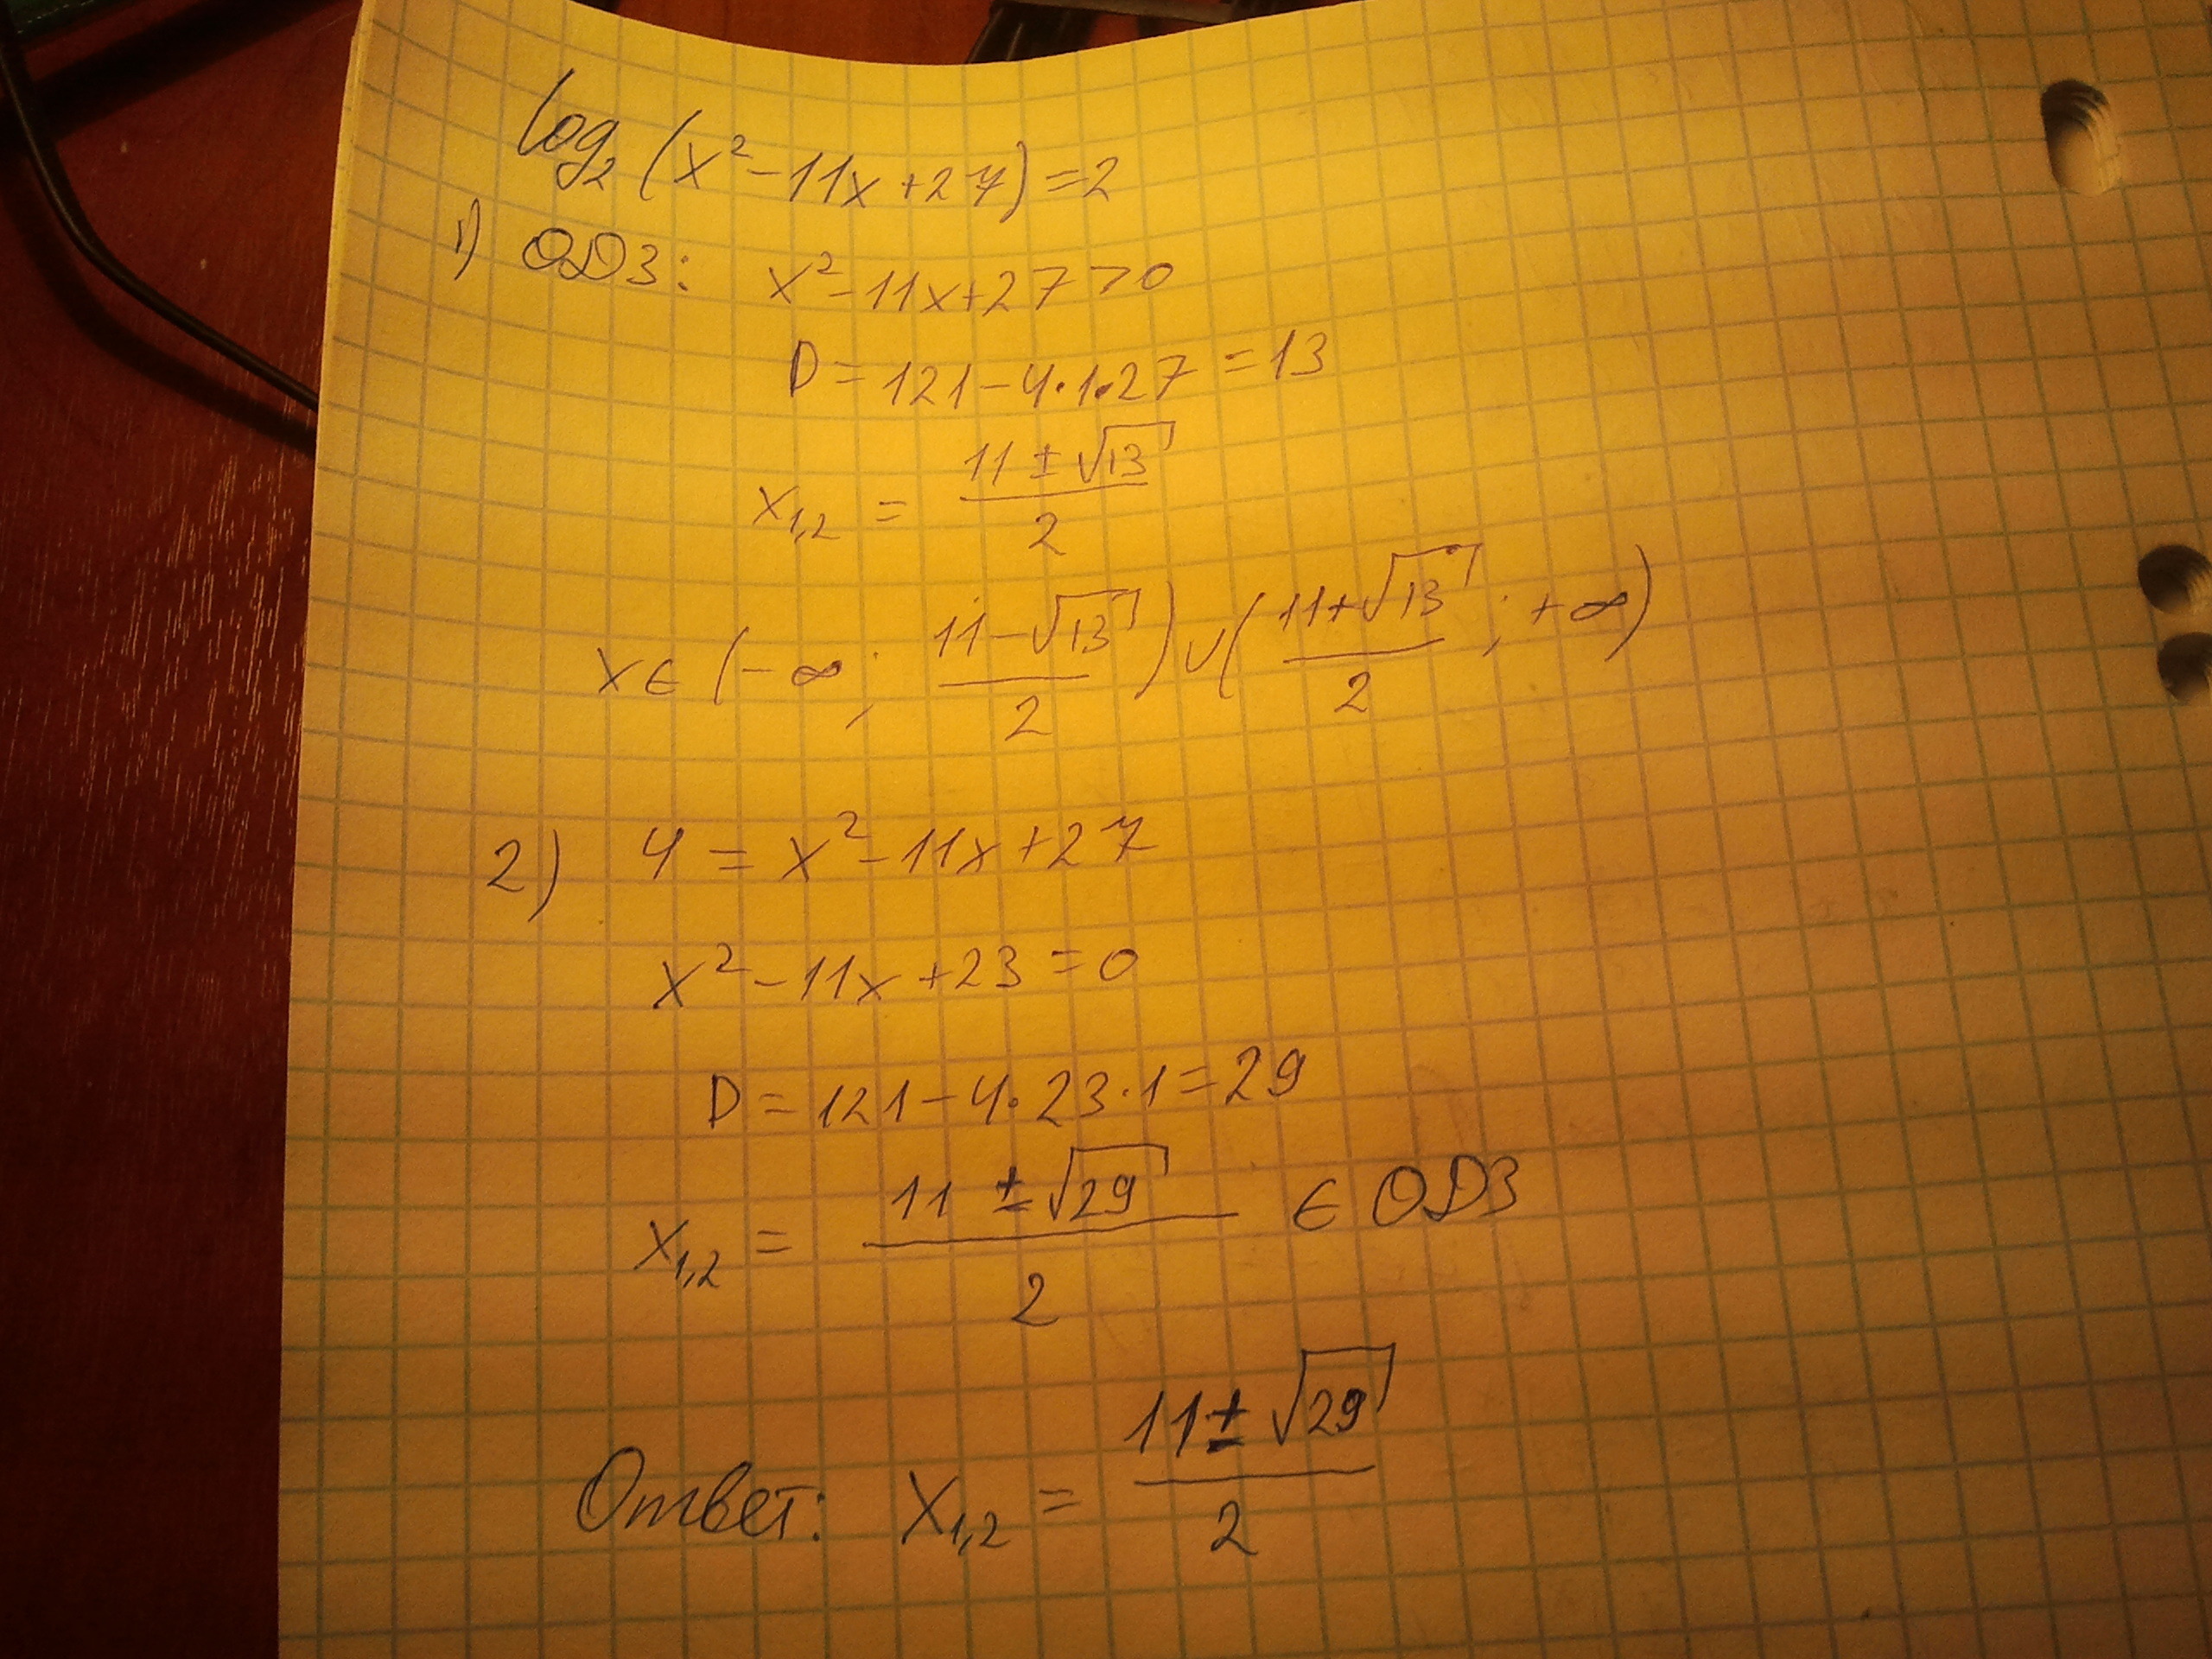 log₂(x²-11x+27)=2
1) ОДЗ: x²-11x+27>0
D=121-4·1·27=13
x₁,₂ = (11±√13)/2
x∈(-∞; (11-√13)/2)∪((11+√13)/2; +∞)
2) 4=x²-11x+27
x²-11x+23=0
D=121-4·23·1=29
x₁,₂ = (11±√29)/2 ∈ ОДЗ
Ответ: x₁,₂ = (11±√29)/2